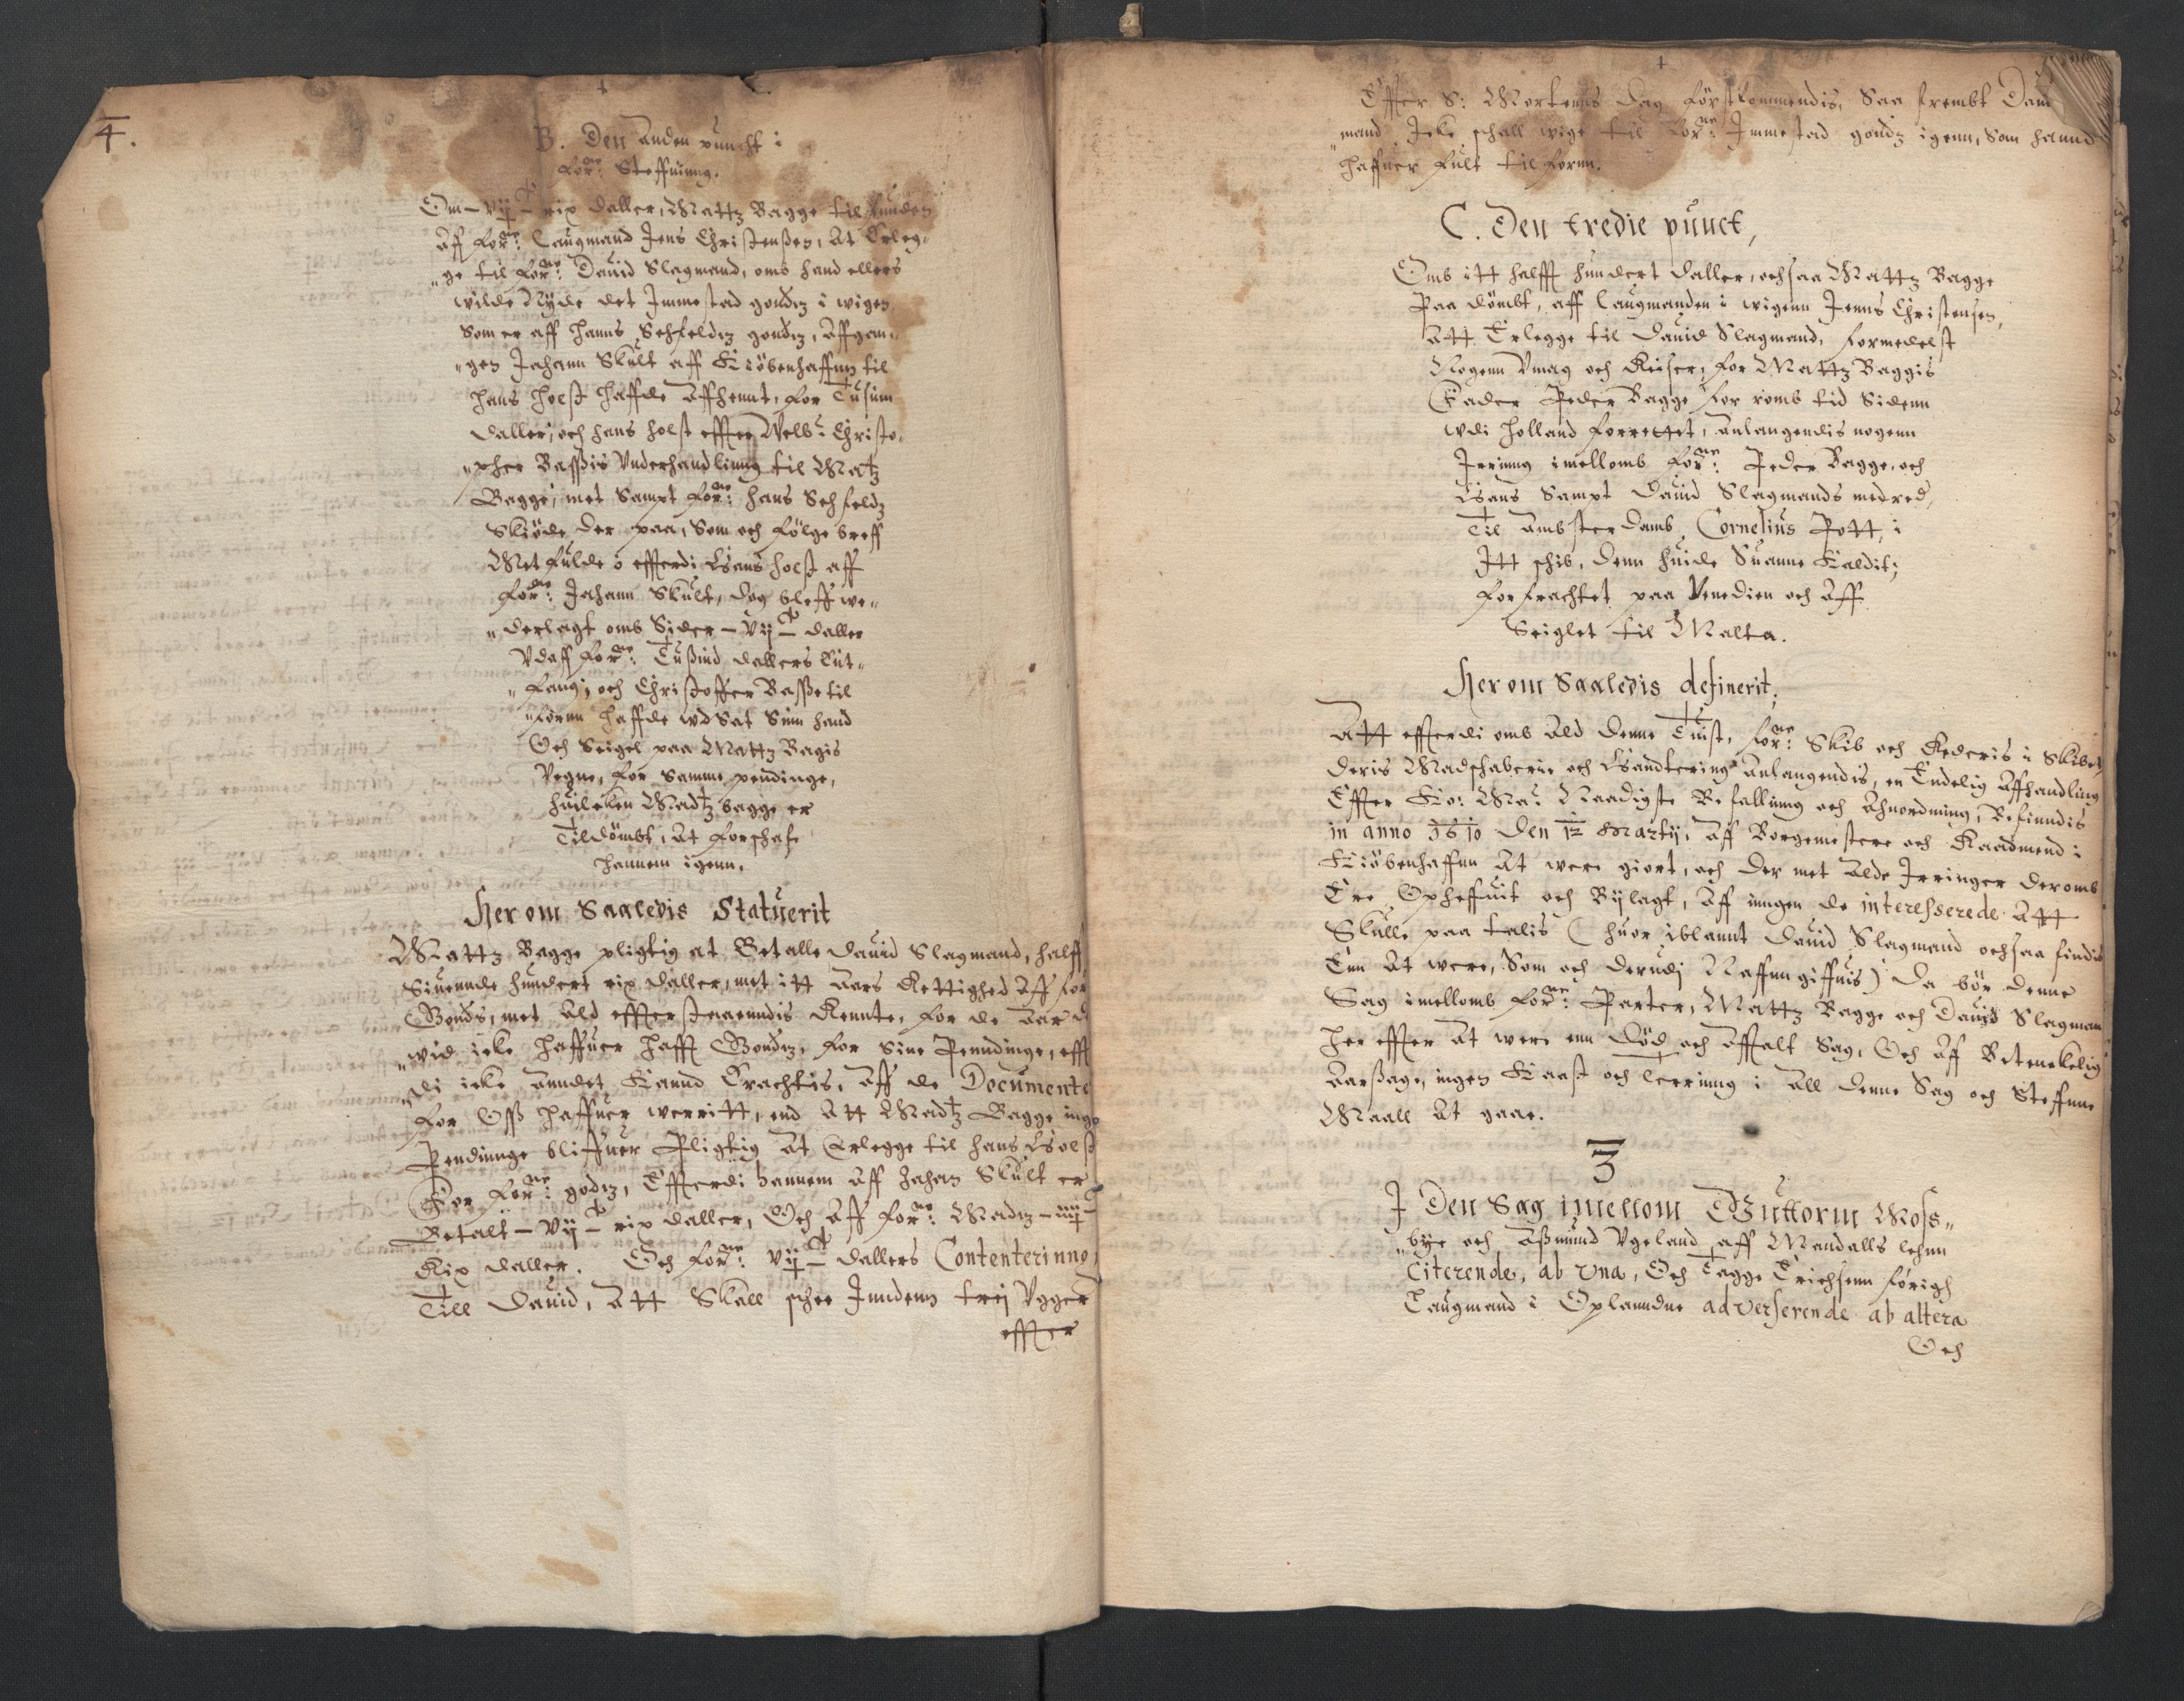 4.
B. Den anden puncht i
forne: Steffning.
Om – vijC – rix daller, Mattz Bagge til funden
Aff forne: Laugmand Jens Christensen, At Erleg-
"ge til forne: Dauid Slagmand, omb hand ellers
wilde Nyde det Immestad goudz i wigen
Som er aff Hanns Sehfeldz goudz, Affgan-
"gen Jahann Skult aff Kiøbenhaffnn til
Hans Holst haffde Affhent, for Tusinn
daller, och Hans Holst effter Welb: Christo-
"pher Bassis Vnderhandlinng til Matz
Bagge, met Sampt forne: Hans Sehfeldz
Skiøde der paa, Som och følge breff
Metfulde, effterdi Hans Holst aff
forne: Jahann Skult, dog bleff we-
"derlagt omb Sider – vijC – daller
Vdaff forne: Tusind dallers lut-
"fang, och Christoffer Basse til
"fornn haffde wdsat Sinn hand
Och Seigel paa Mattz Bagis
Vegne, for Samme pendinge,
huilcken Madtz bagge er
Tildømbt, At forschafe
hannem igenn.
Her om Saaledis Statuerit
Mattz Bagge pligtig at Betalle Dauid Slagmand, halff
Siuennde hundert rix daller, met itt Aars Rettighed Aff for
Gouds, met Ald effterstaaendis Rennte, for de Aar d
"wid icke haffuer hafft Goudz, for Sine Penndinge, efft
"di icke anndet Kannd Erachtis, Aff de Documente
for Oss haffuer werritt, end Att Madtz Bagge inge
Pendinnge bliffuer Pligtig At Erlegge til Hans Holst
For forne: godz, Effterdi hannem Aff Jahan Skult er
Betalt – vijC – rix daller, Och Aff forne: Madz – iiijC
Rix daller. Och forne: vijC – dallers Contenterinng
Till Dauid, Att Skall schee Inndenn trej Vgger
effter
Effter S: Mortenns Dag førstkommendis, Saa frembt Dan
"mand Icke schall wige til forne: Immestad goudz igenn, Som hannd
haffuer fult til fornn.
C. Den tredie punct,
Omb itt halfft hundert daller, ochsaa Mattz Bagge
Paa dømbt, aff Laugmanden i wigenn Jenns Christensen,
Att Erlegge til Dauid Slagmand, formedelst
Nogenn Vmag och Reiser, for Mattz Baggis
Fader Peder Bagge for romb tid Sidenn
wdi Holland forrettet, Anlangendis nogenn
Irrinng imellomb forne: Peder Bagge, och
Hans Sampt Dauid Slagmands medred,
Til Ambsterdamb, Cornelius Pott, i
Itt schib, denn huide Suanne Kaldit,
forfrachtet paa Venedien och Aff
Seiglet til Malta.
Her om Saaledis definerit,
Att effterdi omb Ald denne Tuist, forne: Skib och Rederis i Skibet,
deris Madschaberie och Handtering Anlangendis, en Endelig Affhandling
Effter Ko: Ma: Naadigste Befallinng och Ahnordning, Befinndis
in anno 1610 den 12 Martij, Aff Borgemestere och Raadmend i
Kiøbenhaffnn At were giort, och der met Alde Irringer deromb
Ere Opheffuit och Bylagt, Aff inngen de interesserede Att
Skulle paa talis (huor iblannt Dauid Slagmand ochsaa findis
Enn At were, Som och derudj Naffnn giffuis) Da bør denne
Sag imellomb forne: Parter, Mattz Bagge och Dauid Slagman
her effter At were enn død och Affalt Sag, Och Aff Betenckelig
Aarsage, ingen Kaast och teerinng i All denne Sag och Steffnne
Maall At gaae.
3
I Den Sag imellom Guttorm Moss-
"bye och Aßmund Vgeland aff Mandalls lehnn
Citerende, ab vna, Och Tagge Erichsenn forigh
Laugmand i Oplanndne adverserende ab altera
Och